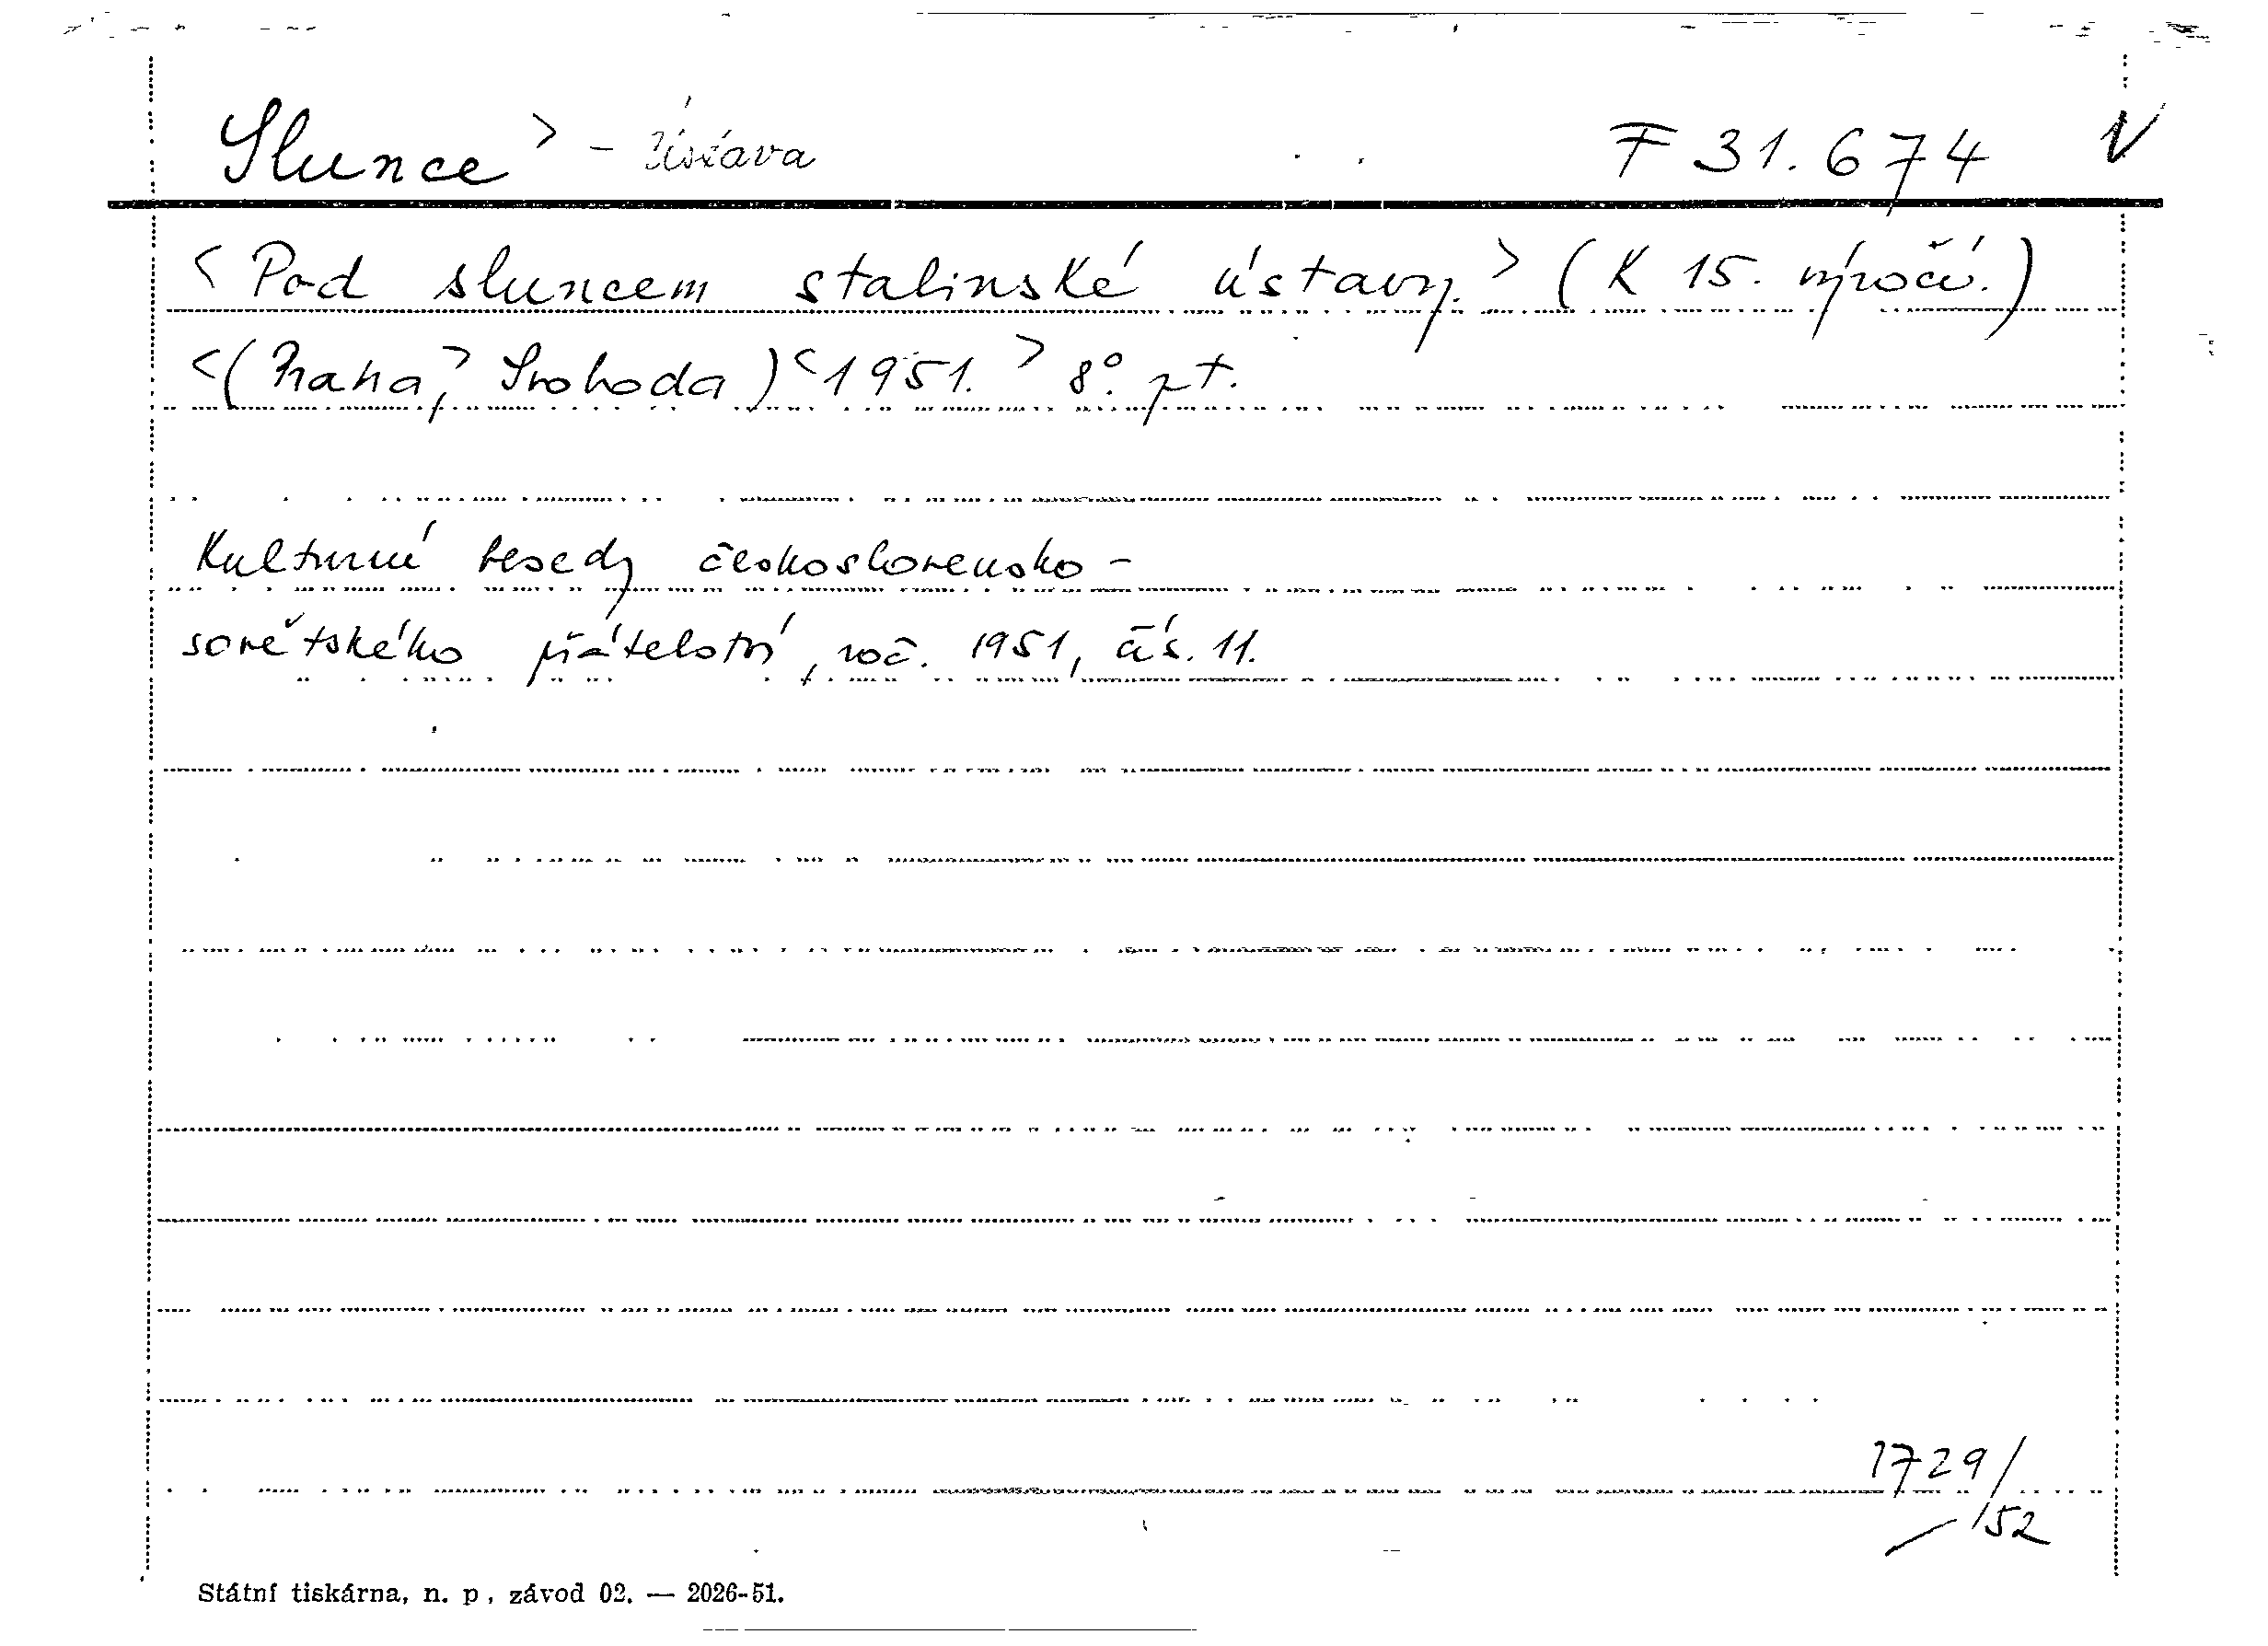 Slunce > - Ústava F 31.674 V
< Pod sluncem stalinské ústavy. > (K 15. výročí.)
< (Praha, > Svoboda) < 1951. > 8°. pt.
Kulturní besedy československo-
sovětského přátelství, roč. 1951, čís. 11.
1729/
/52
Státní tiskárna, n. p., závod 02. — 2026-51.